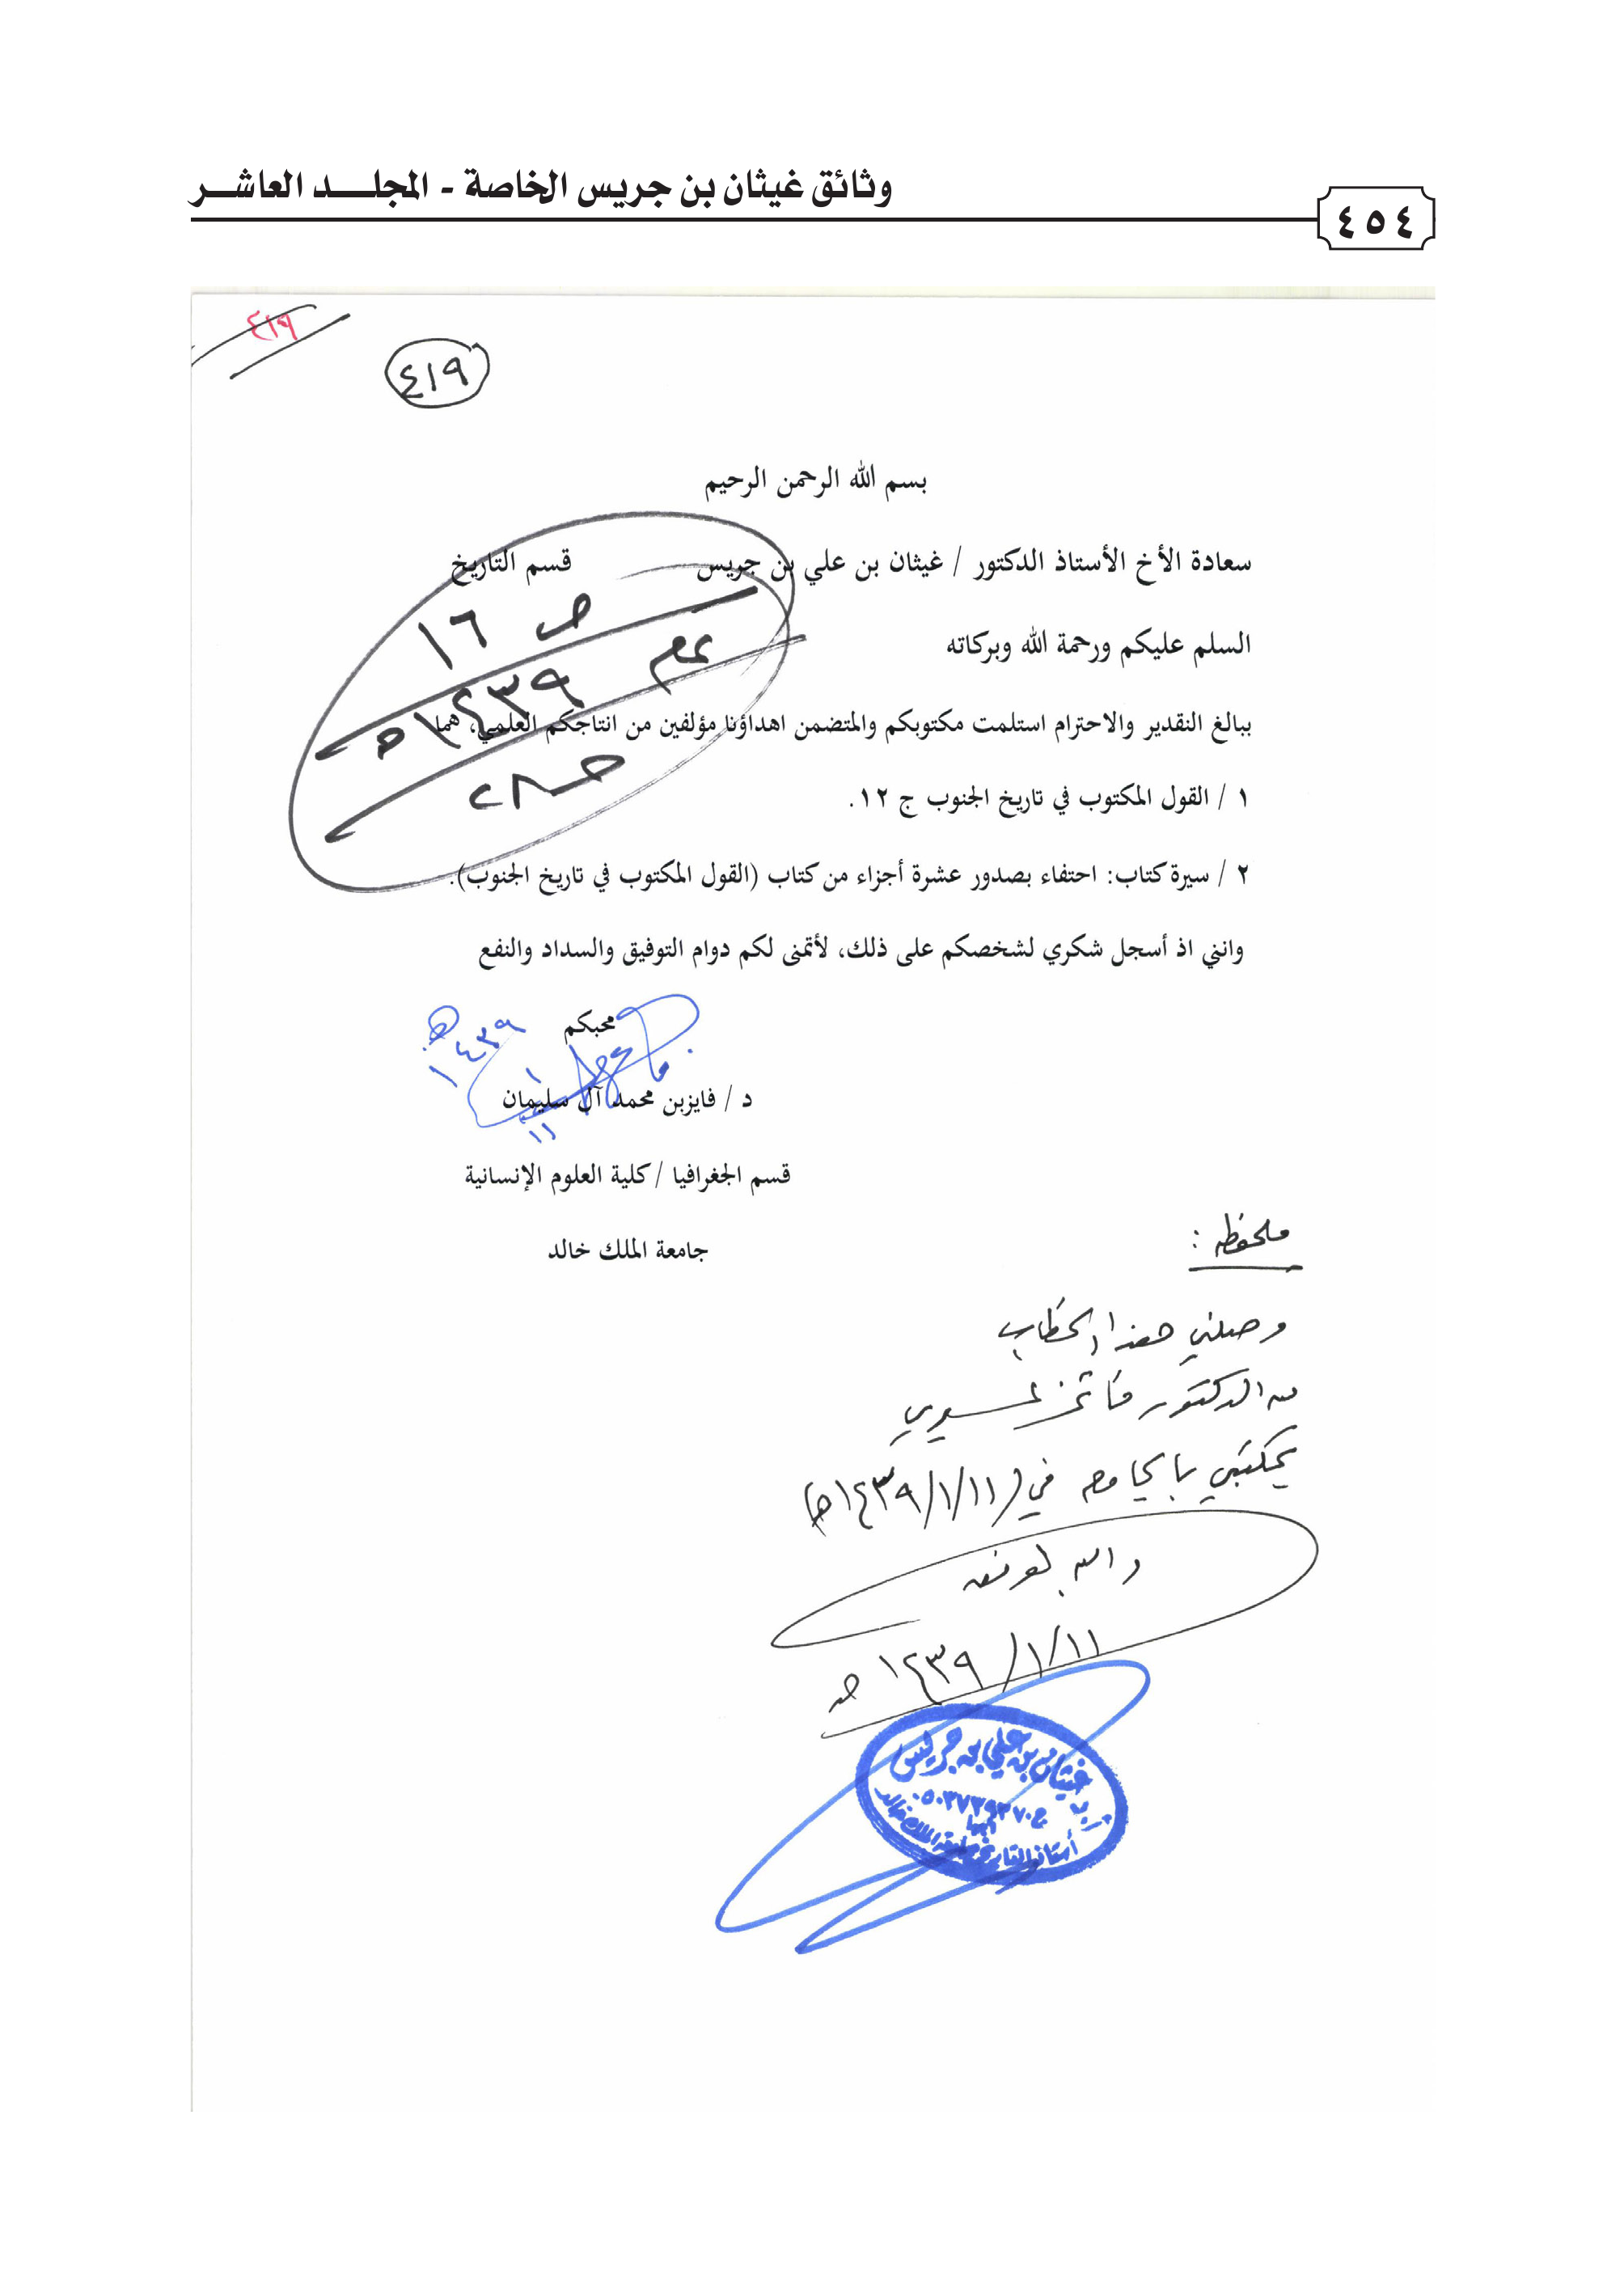 وثائق غيثان بن جريس الخاصة - المجلـــد العاشــر
٤٥٤
٤١٩
٤١٩
بسم الله الرحمن الرحيم
سعادة الأخ الأستاذ الدكتور / غيثان بن علي بن جريس قسم التاريخ
السلم عليكم ورحمة الله وبركاته
ببالغ التقدير والاحترام استلمت مكتوبكم والمتضمن اهداؤنا مؤلفين من انتاجكم العلمي، هما
١ / القول المكتوب في تاريخ الجنوب ج ١٢.
٢ / سيرة كتاب: احتفاء بصدور عشرة أجزاء من كتاب (القول المكتوب في تاريخ الجنوب).
وانني اذ أسجل شكري لشخصكم على ذلك، لأتمنى لكم دوام التوفيق والسداد والنفع
ص ١٦
١٤٣٩ هـ
محبكم
١٤٣٩ هـ
١
١١
د / فايزبن محمد آل سليمان
قسم الجغرافيا / كلية العلوم الإنسانية
جامعة الملك خالد
ملحوظه :
وصلني هذا الخطاب
من الدكتور فائز عسيري
بمكتبي بالجامعه في (١٤٣٩/١/١١هـ)
والله الموفق
١٤٣٩/١/١١ هـ
غيثان بن علي بن جريس
ج ٠٥٠٣٧٣٩٣٧٠
أبها
أستاذ التاريخ بجامعة الملك خالد